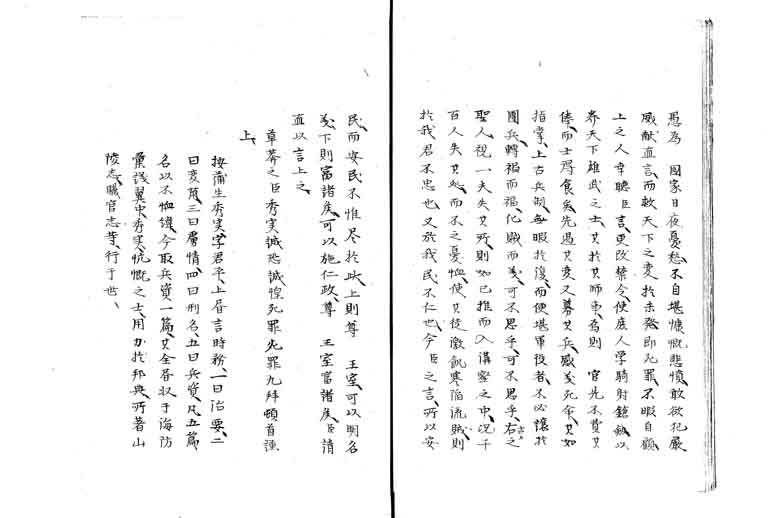 愚為 國家日夜憂愁、不自堪慷慨悲憤、敢欲犯嚴
威献直言、而救天下之変於未発、即死罪不暇自顧、
上之人幸聴臣言、更改禁令、使庶人学騎射銃劍、以
養天下雄武之士、其於其師事為則 官先不費其
俸、而士得食矣、先過其変又募其兵、感義死命、其如
指掌、上古兵制、毎暇於復、而便堪軍役者、不必譲於
團兵、轉禍而福、化賊而義、可不思乎、可不思乎、右之
聖人視一夫失其所、則如已推而入溝壑之中、況千
百人失其処、而不之憂恤、使其徒激飢寒、陥流賊、則
於我君不忠也、又於我民不仁也、今臣之言、所以安
民、而安民不惟尽於此、上則尊 王室、可以明名
義、下則富諸矣、可以施仁政、尊 王室富諸矣、臣請
直以言上之、
草莽之臣秀実、誠恐誠惶、死罪死罪、九拜頓首、謹
上、
按蒲生秀実、字君平、上書言時務、一曰治要、二
曰変萬、三曰層情、四曰刑名、五曰兵資、凡五篇
名以不恤緯、今取兵資一篇、其全書収于海防
彙議翼中、秀実慷慨之士、用力於邦典、所著山
陵志職官志等、行于世、